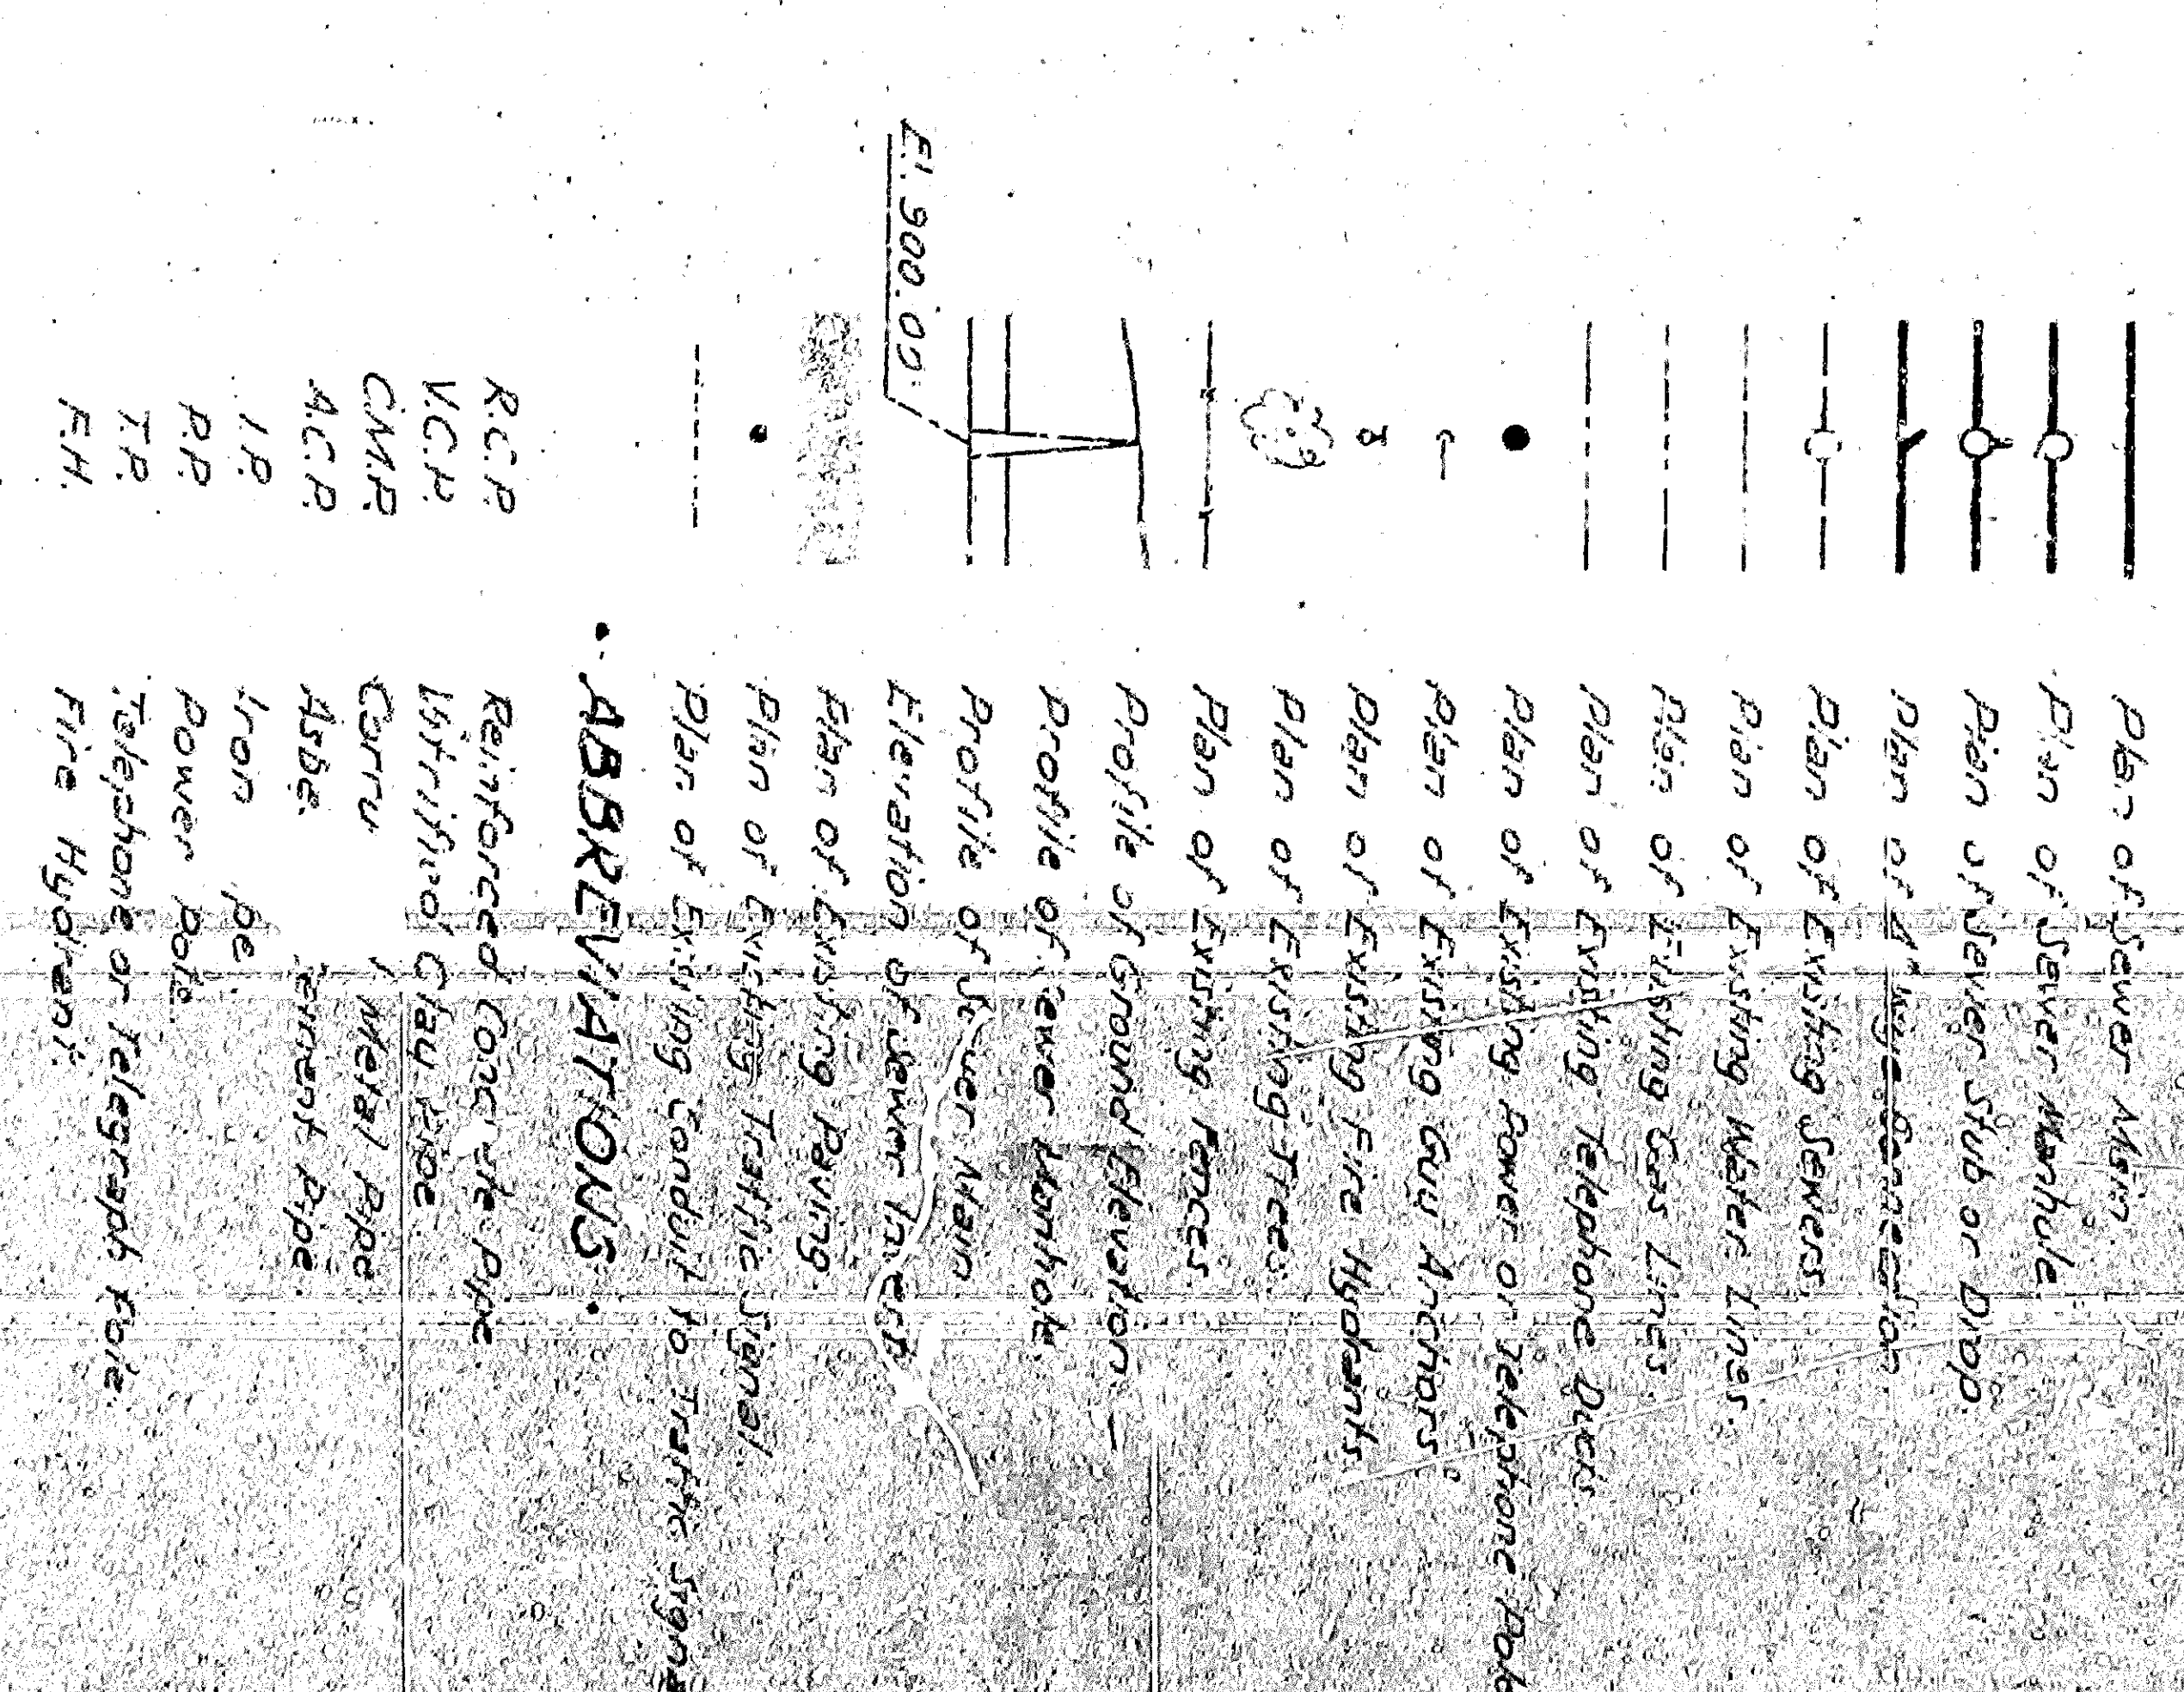 Plan of Sewer Main.
Plan of Sewer Manhole.
Plan of Sewer Stub or Drop.
Plan of 4" Wye Connection
Plan of Existing Sewers.
Plan of Existing Water Lines.
Plan of Existing Gas Lines
Plan of Existing Telephone Ducts.
Plan of Existing Power or Telephone Pole
Plan of Existing Guy Anchors.
Plan of Existing Fire Hydrants.
Plan of Existing Tree.
Plan of Existing Fences.
Profile of Ground Elevation
Profile of Sewer Manhole.
Profile of Sewer Main.
El. 900.00 Elevation of Sewer Invert.
Plan of Existing Paving.
Plan of Existing Traffic Signal.
Plan of Existing Conduit to Traffic Signa
• ABBREVIATIONS •
R.C.P. Reinforced Concrete Pipe.
V.C.P. Vitrified Clay Pipe
C.M.P. Corru Metal Pipe
A.C.P. Asbe Pipe.
I.P. Iron pe.
P.P. Power Pole.
T.P. Telephone or Telegraph Pole.
F.H. Fire Hydrant.